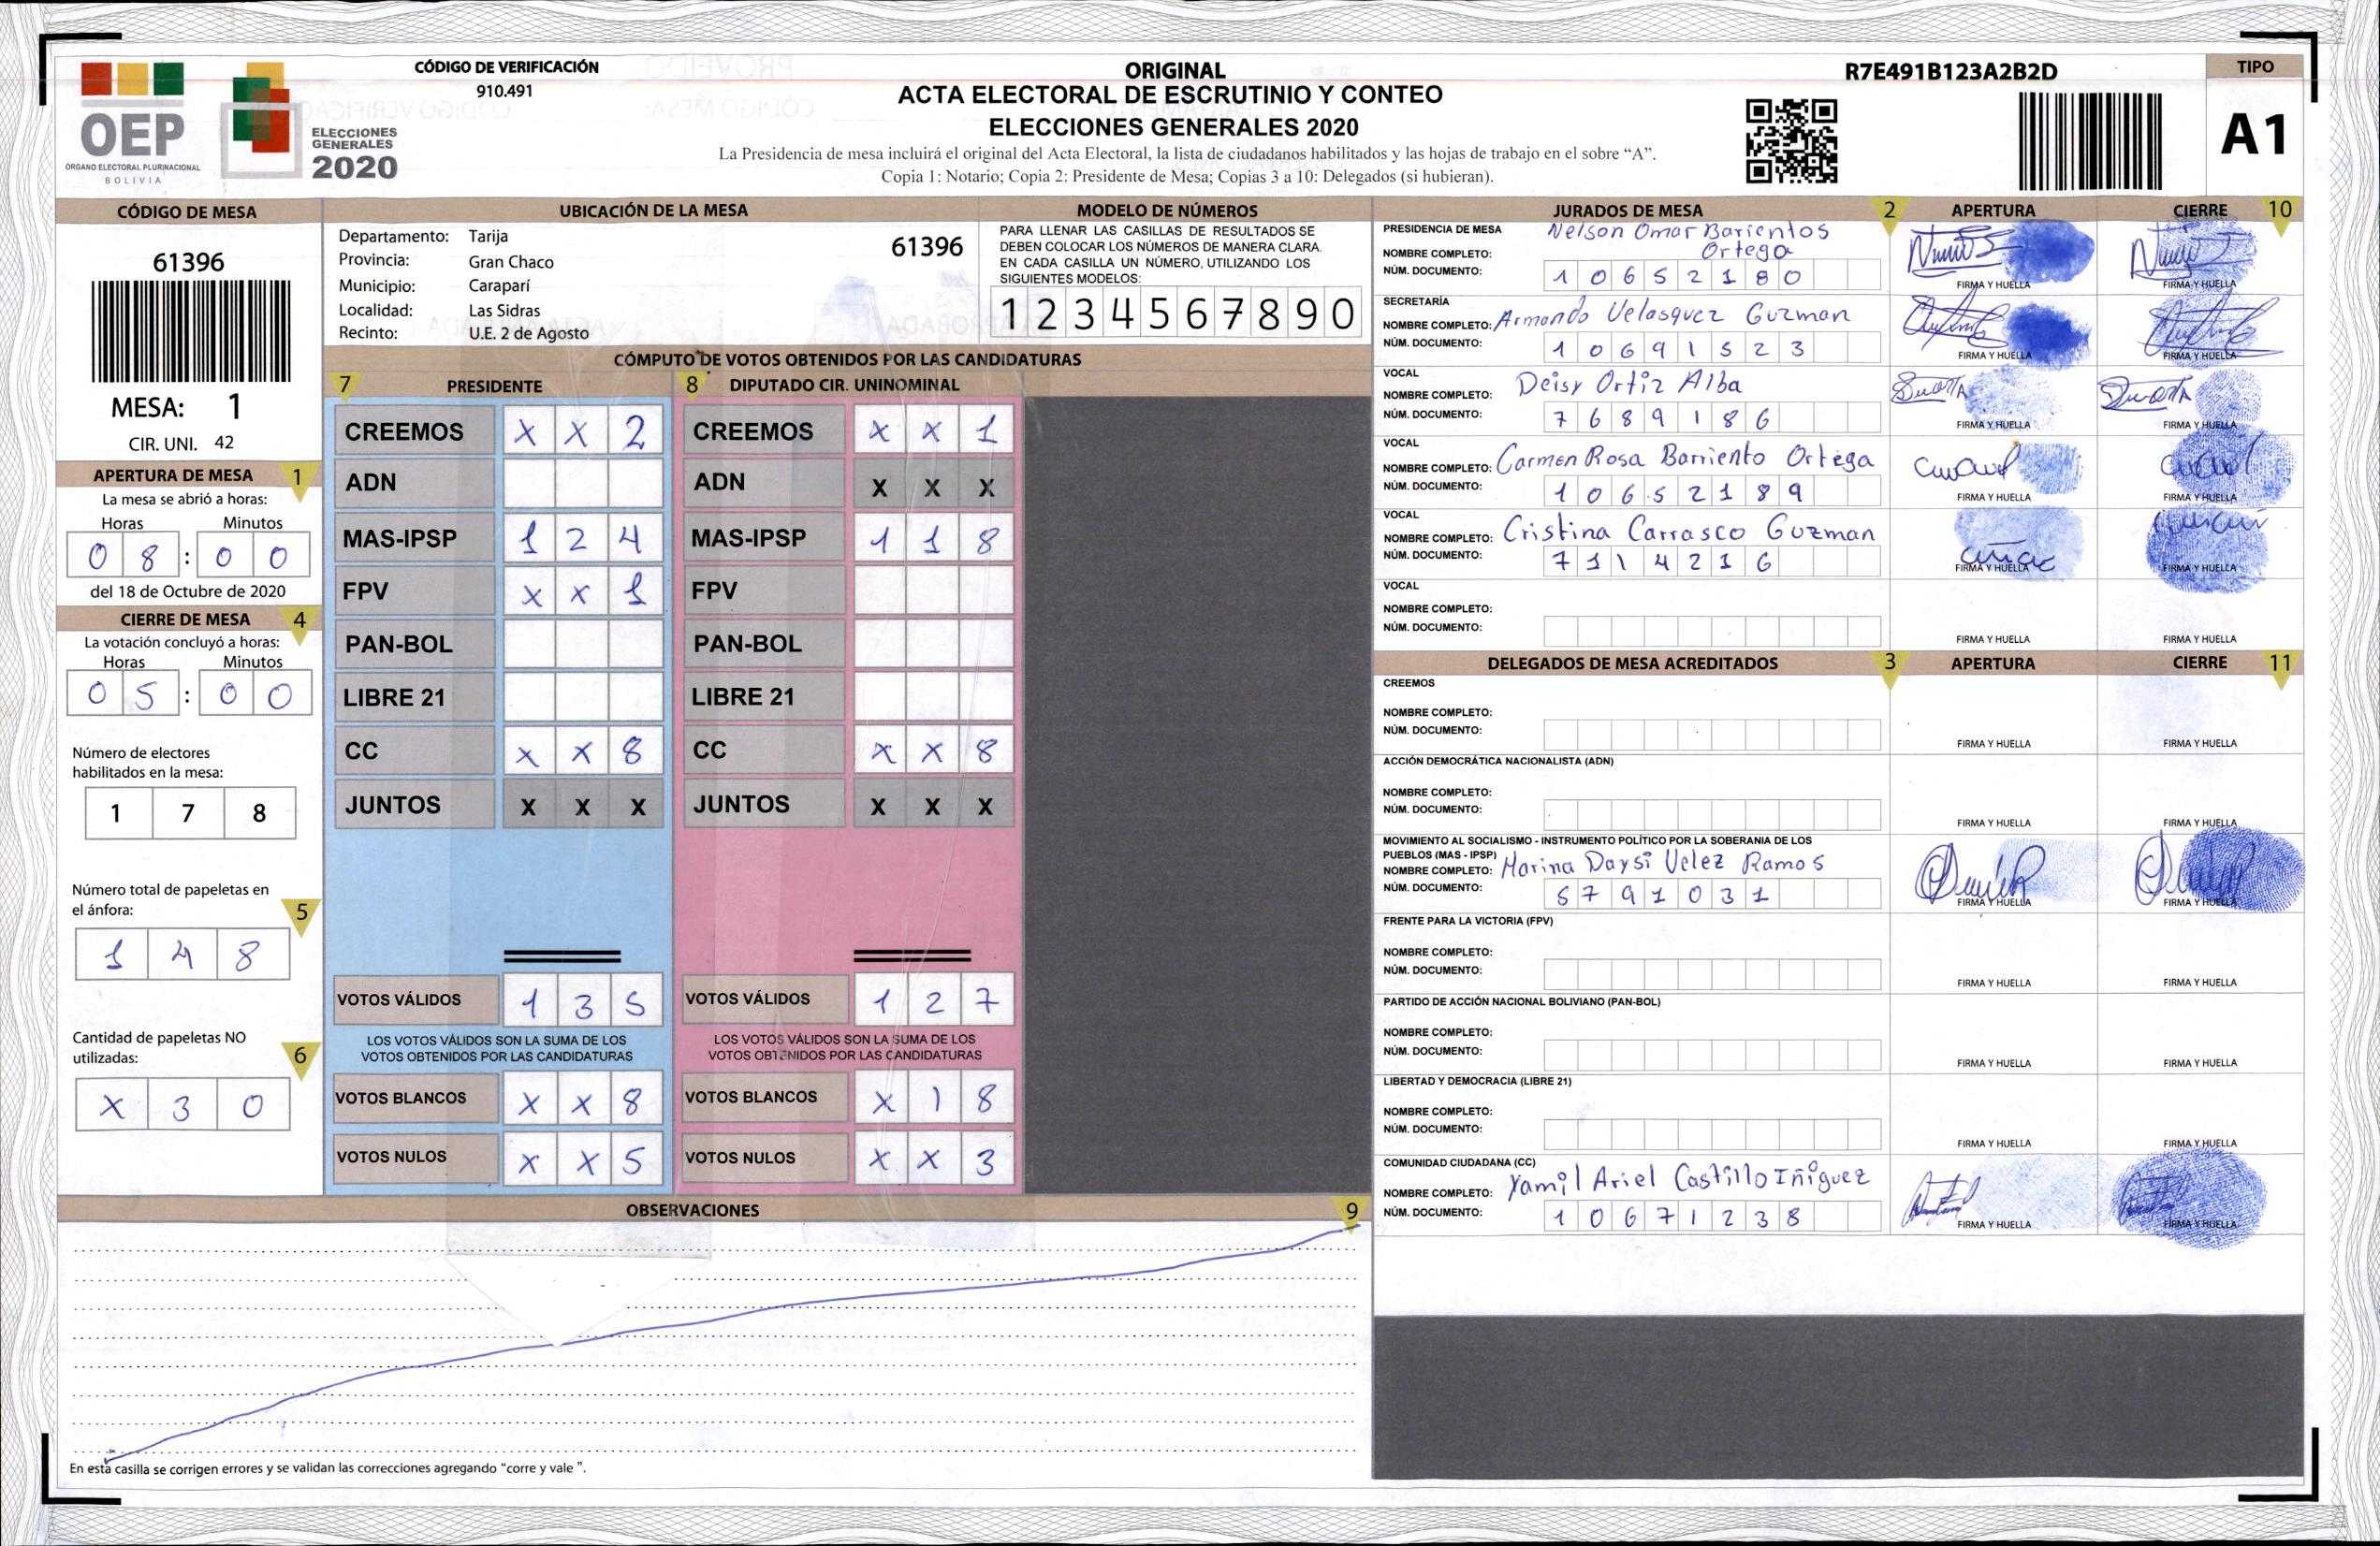 CÓDIGO DE VERIFICACIÓN
910.491
ORIGINAL
ACTA ELECTORAL DE ESCRUTINIO Y CONTEO
ELECCIONES GENERALES 2020
La Presidencia de mesa incluirá el original del Acta Electoral, la lista de ciudadanos habilitados y las hojas de trabajo en el sobre “A”.
Copia 1: Notario; Copia 2: Presidente de Mesa; Copias 3 a 10: Delegados (si hubieran).
R7E491B123A2B2D
TIPO
A1
OEP
ÓRGANO ELECTORAL PLURINACIONAL
BOLIVIA
ELECCIONES
GENERALES
2020
CÓDIGO DE MESA
61396
MESA: 1
CIR. UNI. 42
APERTURA DE MESA 1
La mesa se abrió a horas:
Horas Minutos
0 8 : 0 0
del 18 de Octubre de 2020
CIERRE DE MESA 4
La votación concluyó a horas:
Horas Minutos
0 5 : 0 0
Número de electores
habilitados en la mesa:
1 7 8
Número total de papeletas en
el ánfora: 5
1 4 8
Cantidad de papeletas NO
utilizadas: 6
X 3 0
UBICACIÓN DE LA MESA
Departamento: Tarija
61396
Provincia: Gran Chaco
Municipio: Caraparí
Localidad: Las Sidras
Recinto: U.E. 2 de Agosto
MODELO DE NÚMEROS
PARA LLENAR LAS CASILLAS DE RESULTADOS SE
DEBEN COLOCAR LOS NÚMEROS DE MANERA CLARA.
EN CADA CASILLA UN NÚMERO, UTILIZANDO LOS
SIGUIENTES MODELOS:
1 2 3 4 5 6 7 8 9 0
CÓMPUTO DE VOTOS OBTENIDOS POR LAS CANDIDATURAS
7 PRESIDENTE
CREEMOS X X 2
ADN
MAS-IPSP 1 2 4
FPV X X 1
PAN-BOL
LIBRE 21
CC X X 8
JUNTOS X X X
VOTOS VÁLIDOS 1 3 5
LOS VOTOS VÁLIDOS SON LA SUMA DE LOS
VOTOS OBTENIDOS POR LAS CANDIDATURAS
VOTOS BLANCOS X X 8
VOTOS NULOS X X 5
8 DIPUTADO CIR. UNINOMINAL
CREEMOS X X 1
ADN X X X
MAS-IPSP 1 1 8
FPV
PAN-BOL
LIBRE 21
CC X X 8
JUNTOS X X X
VOTOS VÁLIDOS 1 2 7
LOS VOTOS VÁLIDOS SON LA SUMA DE LOS
VOTOS OBTENIDOS POR LAS CANDIDATURAS
VOTOS BLANCOS X 1 8
VOTOS NULOS X X 3
OBSERVACIONES 9
En esta casilla se corrigen errores y se validan las correcciones agregando “corre y vale ”.
JURADOS DE MESA 2 APERTURA CIERRE 10
PRESIDENCIA DE MESA
NOMBRE COMPLETO: Nelson Omar Barientos
Ortega
NÚM. DOCUMENTO: 1 0 6 5 2 1 8 0
FIRMA Y HUELLA FIRMA Y HUELLA
SECRETARÍA
NOMBRE COMPLETO: Armando Velasquez Guzman
NÚM. DOCUMENTO: 1 0 6 9 1 5 2 3
FIRMA Y HUELLA FIRMA Y HUELLA
VOCAL
NOMBRE COMPLETO: Deisy Ortiz Alba
NÚM. DOCUMENTO: 7 6 8 9 1 8 6
FIRMA Y HUELLA FIRMA Y HUELLA
VOCAL
NOMBRE COMPLETO: Carmen Rosa Barriento Ortega
NÚM. DOCUMENTO: 1 0 6 5 2 1 8 9
FIRMA Y HUELLA FIRMA Y HUELLA
VOCAL
NOMBRE COMPLETO: Cristina Carrasco Guzman
NÚM. DOCUMENTO: 7 1 1 4 2 1 6
FIRMA Y HUELLA FIRMA Y HUELLA
VOCAL
NOMBRE COMPLETO:
NÚM. DOCUMENTO:
FIRMA Y HUELLA FIRMA Y HUELLA
DELEGADOS DE MESA ACREDITADOS 3 APERTURA CIERRE 11
CREEMOS
NOMBRE COMPLETO:
NÚM. DOCUMENTO:
FIRMA Y HUELLA FIRMA Y HUELLA
ACCIÓN DEMOCRÁTICA NACIONALISTA (ADN)
NOMBRE COMPLETO:
NÚM. DOCUMENTO:
FIRMA Y HUELLA FIRMA Y HUELLA
MOVIMIENTO AL SOCIALISMO - INSTRUMENTO POLÍTICO POR LA SOBERANIA DE LOS
PUEBLOS (MAS - IPSP)
NOMBRE COMPLETO: Marina Daysi Velez Ramos
NÚM. DOCUMENTO: 5 7 9 1 0 3 1
FIRMA Y HUELLA FIRMA Y HUELLA
FRENTE PARA LA VICTORIA (FPV)
NOMBRE COMPLETO:
NÚM. DOCUMENTO:
FIRMA Y HUELLA FIRMA Y HUELLA
PARTIDO DE ACCIÓN NACIONAL BOLIVIANO (PAN-BOL)
NOMBRE COMPLETO:
NÚM. DOCUMENTO:
FIRMA Y HUELLA FIRMA Y HUELLA
LIBERTAD Y DEMOCRACIA (LIBRE 21)
NOMBRE COMPLETO:
NÚM. DOCUMENTO:
FIRMA Y HUELLA FIRMA Y HUELLA
COMUNIDAD CIUDADANA (CC)
NOMBRE COMPLETO: Yamil Ariel Castillo Iñiguez
NÚM. DOCUMENTO: 1 0 6 7 1 2 3 8
FIRMA Y HUELLA FIRMA Y HUELLA